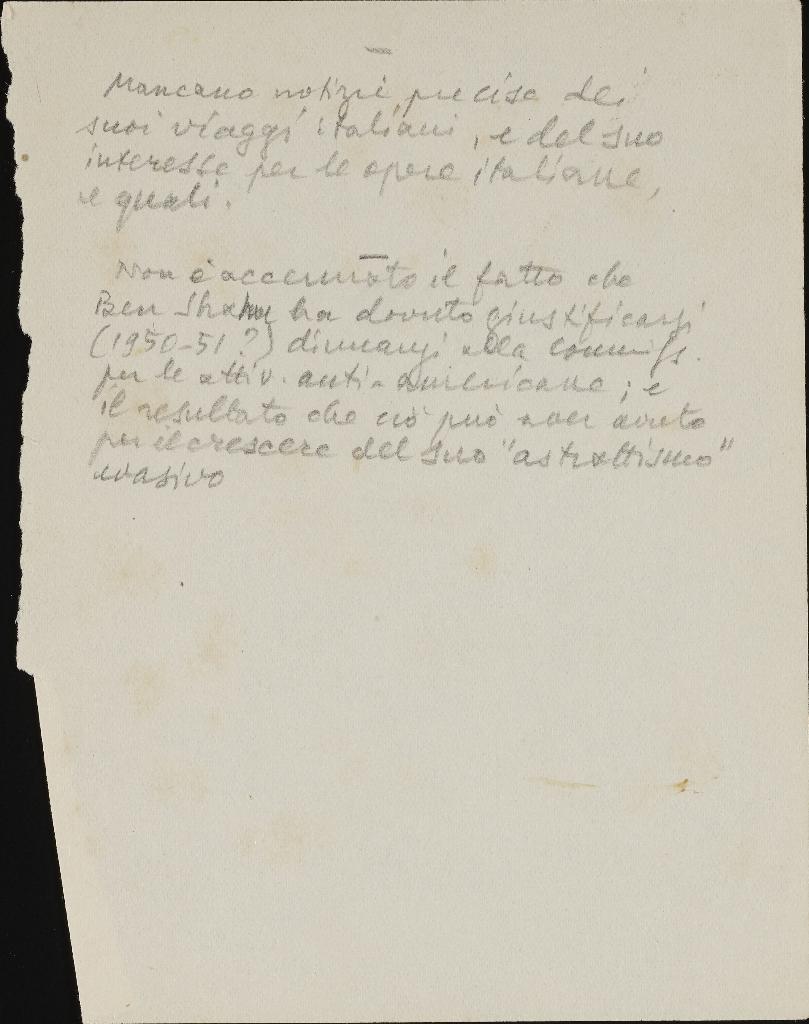 Mancano notizie precise dei
suoi viaggi italiani, e del suo
interesse per le opere italiane,
e quali.
Non è accennato il fatto che
Ben Shahn ha dovuto giustificarsi
(1950-51?) dinnanzi alla commiss.
per le attiv. anti-americane; e
il resultato che ciò può aver avuto
per il crescere del suo "astrattismo"
evasivo